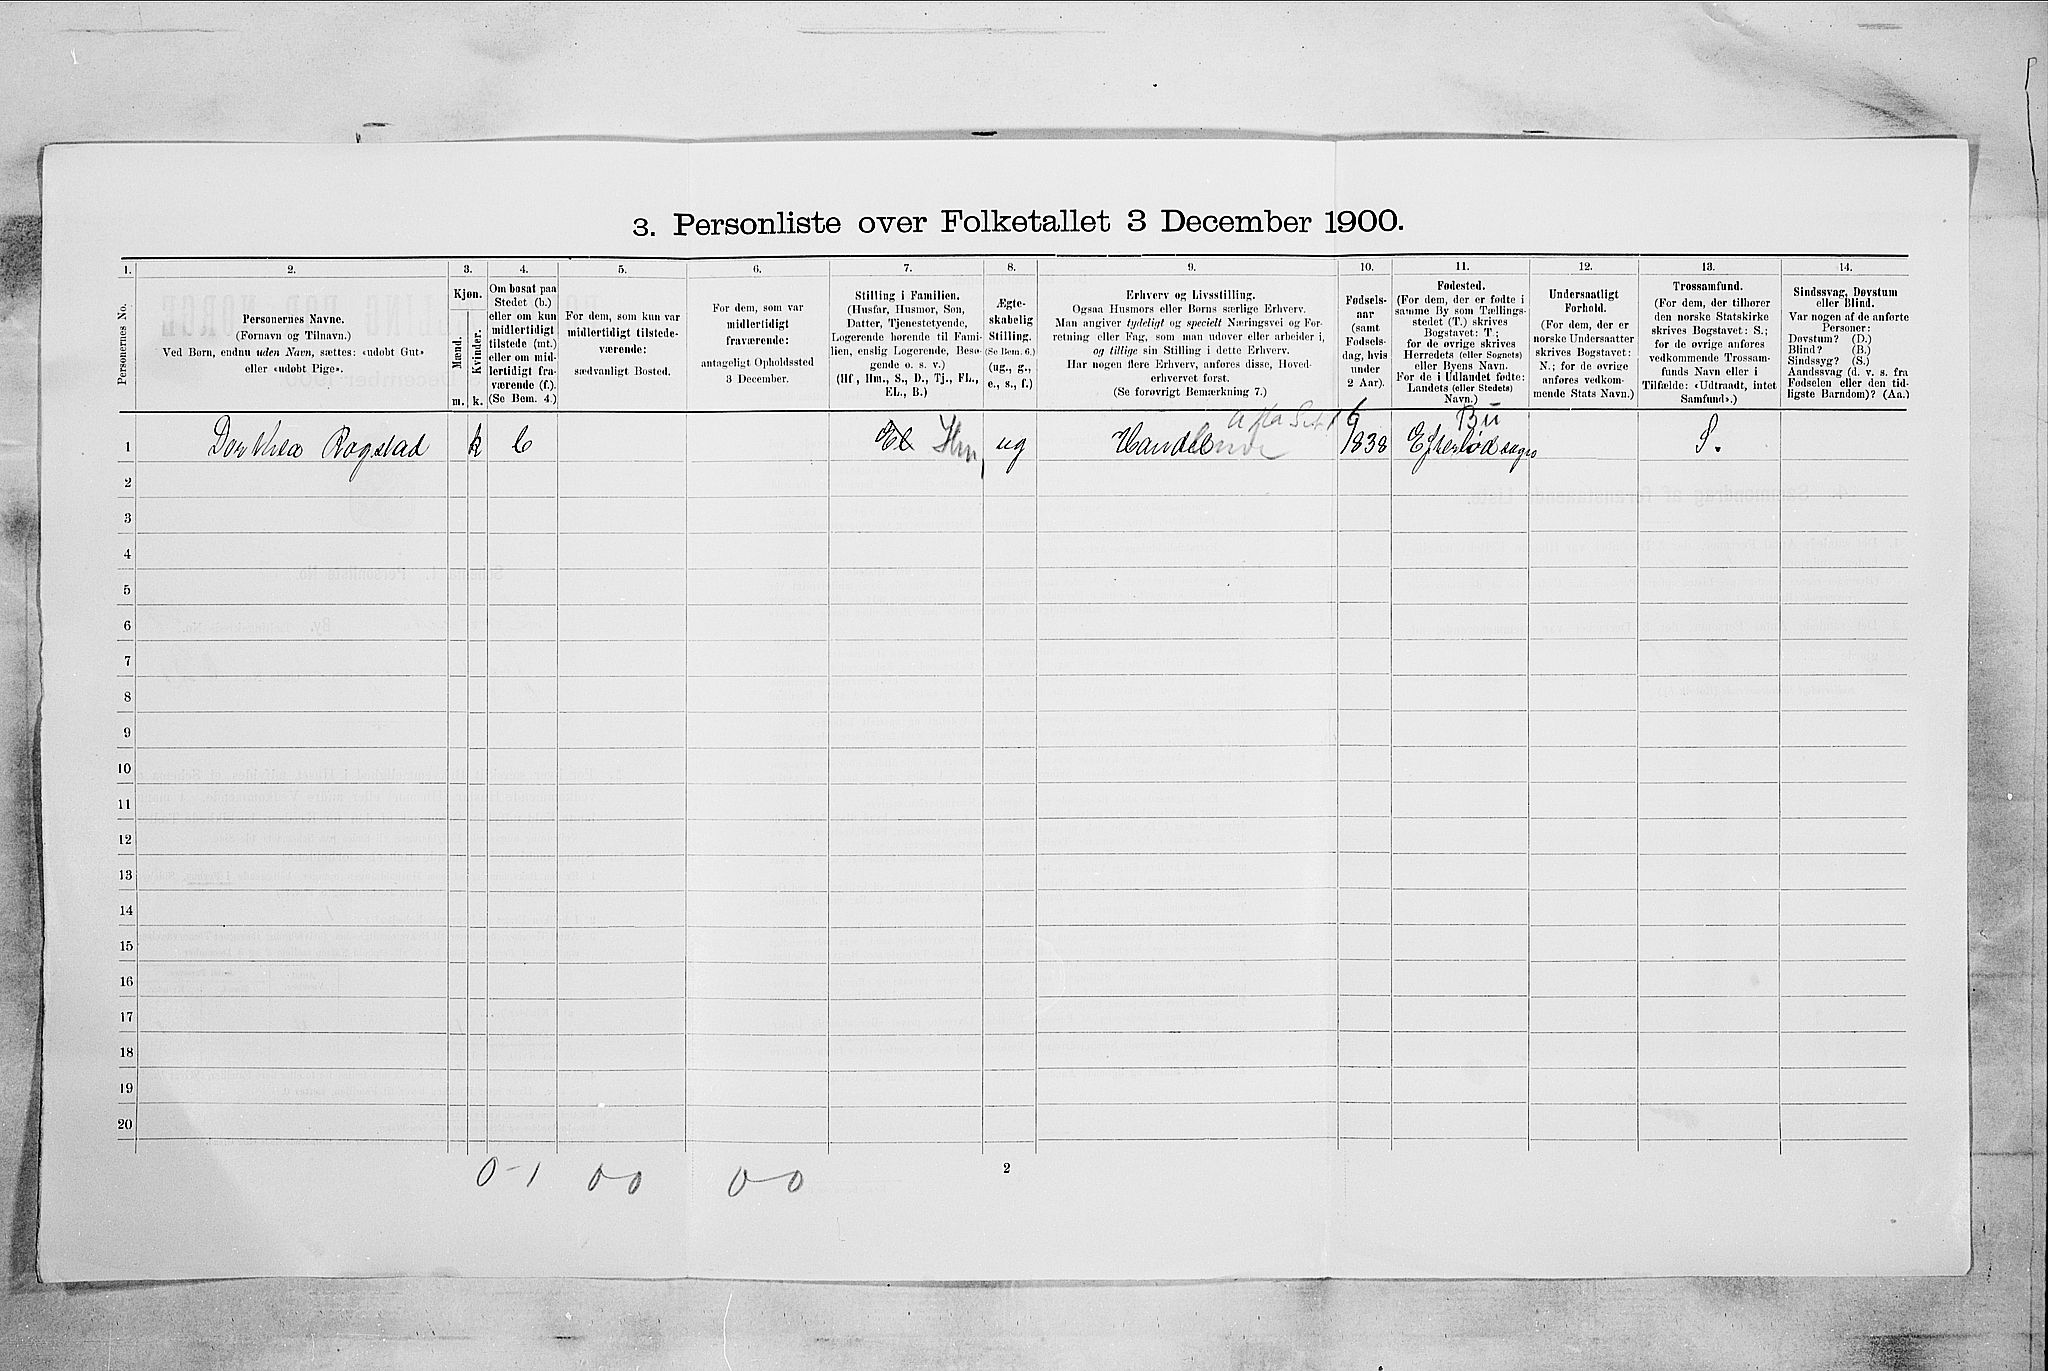 3. Personliste over Folketallet 3 December 1900.
1. 2. 3. 4. 5. 6. 7. 8. 9. 10. 11. 12. 13. 14.
Personernes No.
Personernes Navne.
(Fornavn og Tilnavn.)
Ved Børn, endnu uden Navn, sættes: «udøbt Gut»
eller «udøbt Pige».
Kjøn.
Mænd.
Kvinder.
m. k.
Om bosat paa
Stedet (b.)
eller om kun
midlertidigt
tilstede (mt.)
eller om mid-
lertidigt fra-
værende (f.).
(Se Bem. 4.)
For dem, som kun var
midlertidigt tilstede-
værende:
sædvanligt Bosted.
For dem, som var
midlertidigt
fraværende:
antageligt Opholdssted
3 December.
Stilling i Familien.
(Husfar, Husmor, Søn,
Datter, Tjenestetyende,
Logerende hørende til Fami-
lien, enslig Logerende, Besø-
gende o. s. v.)
(Hf., Hm., S., D., Tj., FL.,
EL., B.)
Ægte-
skabelig
Stilling.
(Se Bem. 6.)
(ug., g.,
e., s., f.)
Erhverv og Livsstilling.
Ogsaa Husmors eller Børns særlige Erhverv.
Man angiver tydeligt og specielt Næringsvei og For-
retning eller Fag, som man udøver eller arbeider i,
og tillige sin Stilling i dette Erhverv.
Har nogen flere Erhverv, anføres disse, Hoved-
erhvervet først.
(Se forøvrigt Bemærkning 7.)
Fødsels-
aar
(samt
Fødsels-
dag, hvis
under
2 Aar).
Fødested.
(For dem, der er fødte i
samme By som Tællings-
stedet (T.) skrives
Bogstavet: T.;
for de øvrige skrives
Herredets (eller Sognets)
eller Byens Navn.
For de i Udlandet fødte:
Landets (eller Stedets)
Navn.)
Undersaatligt
Forhold.
(For dem, der er
norske Undersaatter
skrives Bogstavet:
N.; for de øvrige
anføres vedkom-
mende Stats Navn.)
Trossamfund.
(For dem, der tilhører
den norske Statskirke
skrives Bogstavet: S.;
for de øvrige anføres
vedkommende Trossam-
funds Navn eller i
Tilfælde: «Udtraadt, intet
Samfund».)
Sindssvag, Døvstum
eller Blind.
Var nogen af de anførte
Personer:
Døvstum? (D.)
Blind? (B.)
Sindssyg? (S.)
Aandssvag (d. v. s. fra
Fødselen eller den tid-
ligste Barndom)? (Aa.)
6 Bu
1 Dorthea Rogstad k b El Hm ug Handel 1838 S.
2
3
4
5
6
7
8
9
10
11
12
13
14
15
16
17
18
19
20
0-1 00 0-0
2